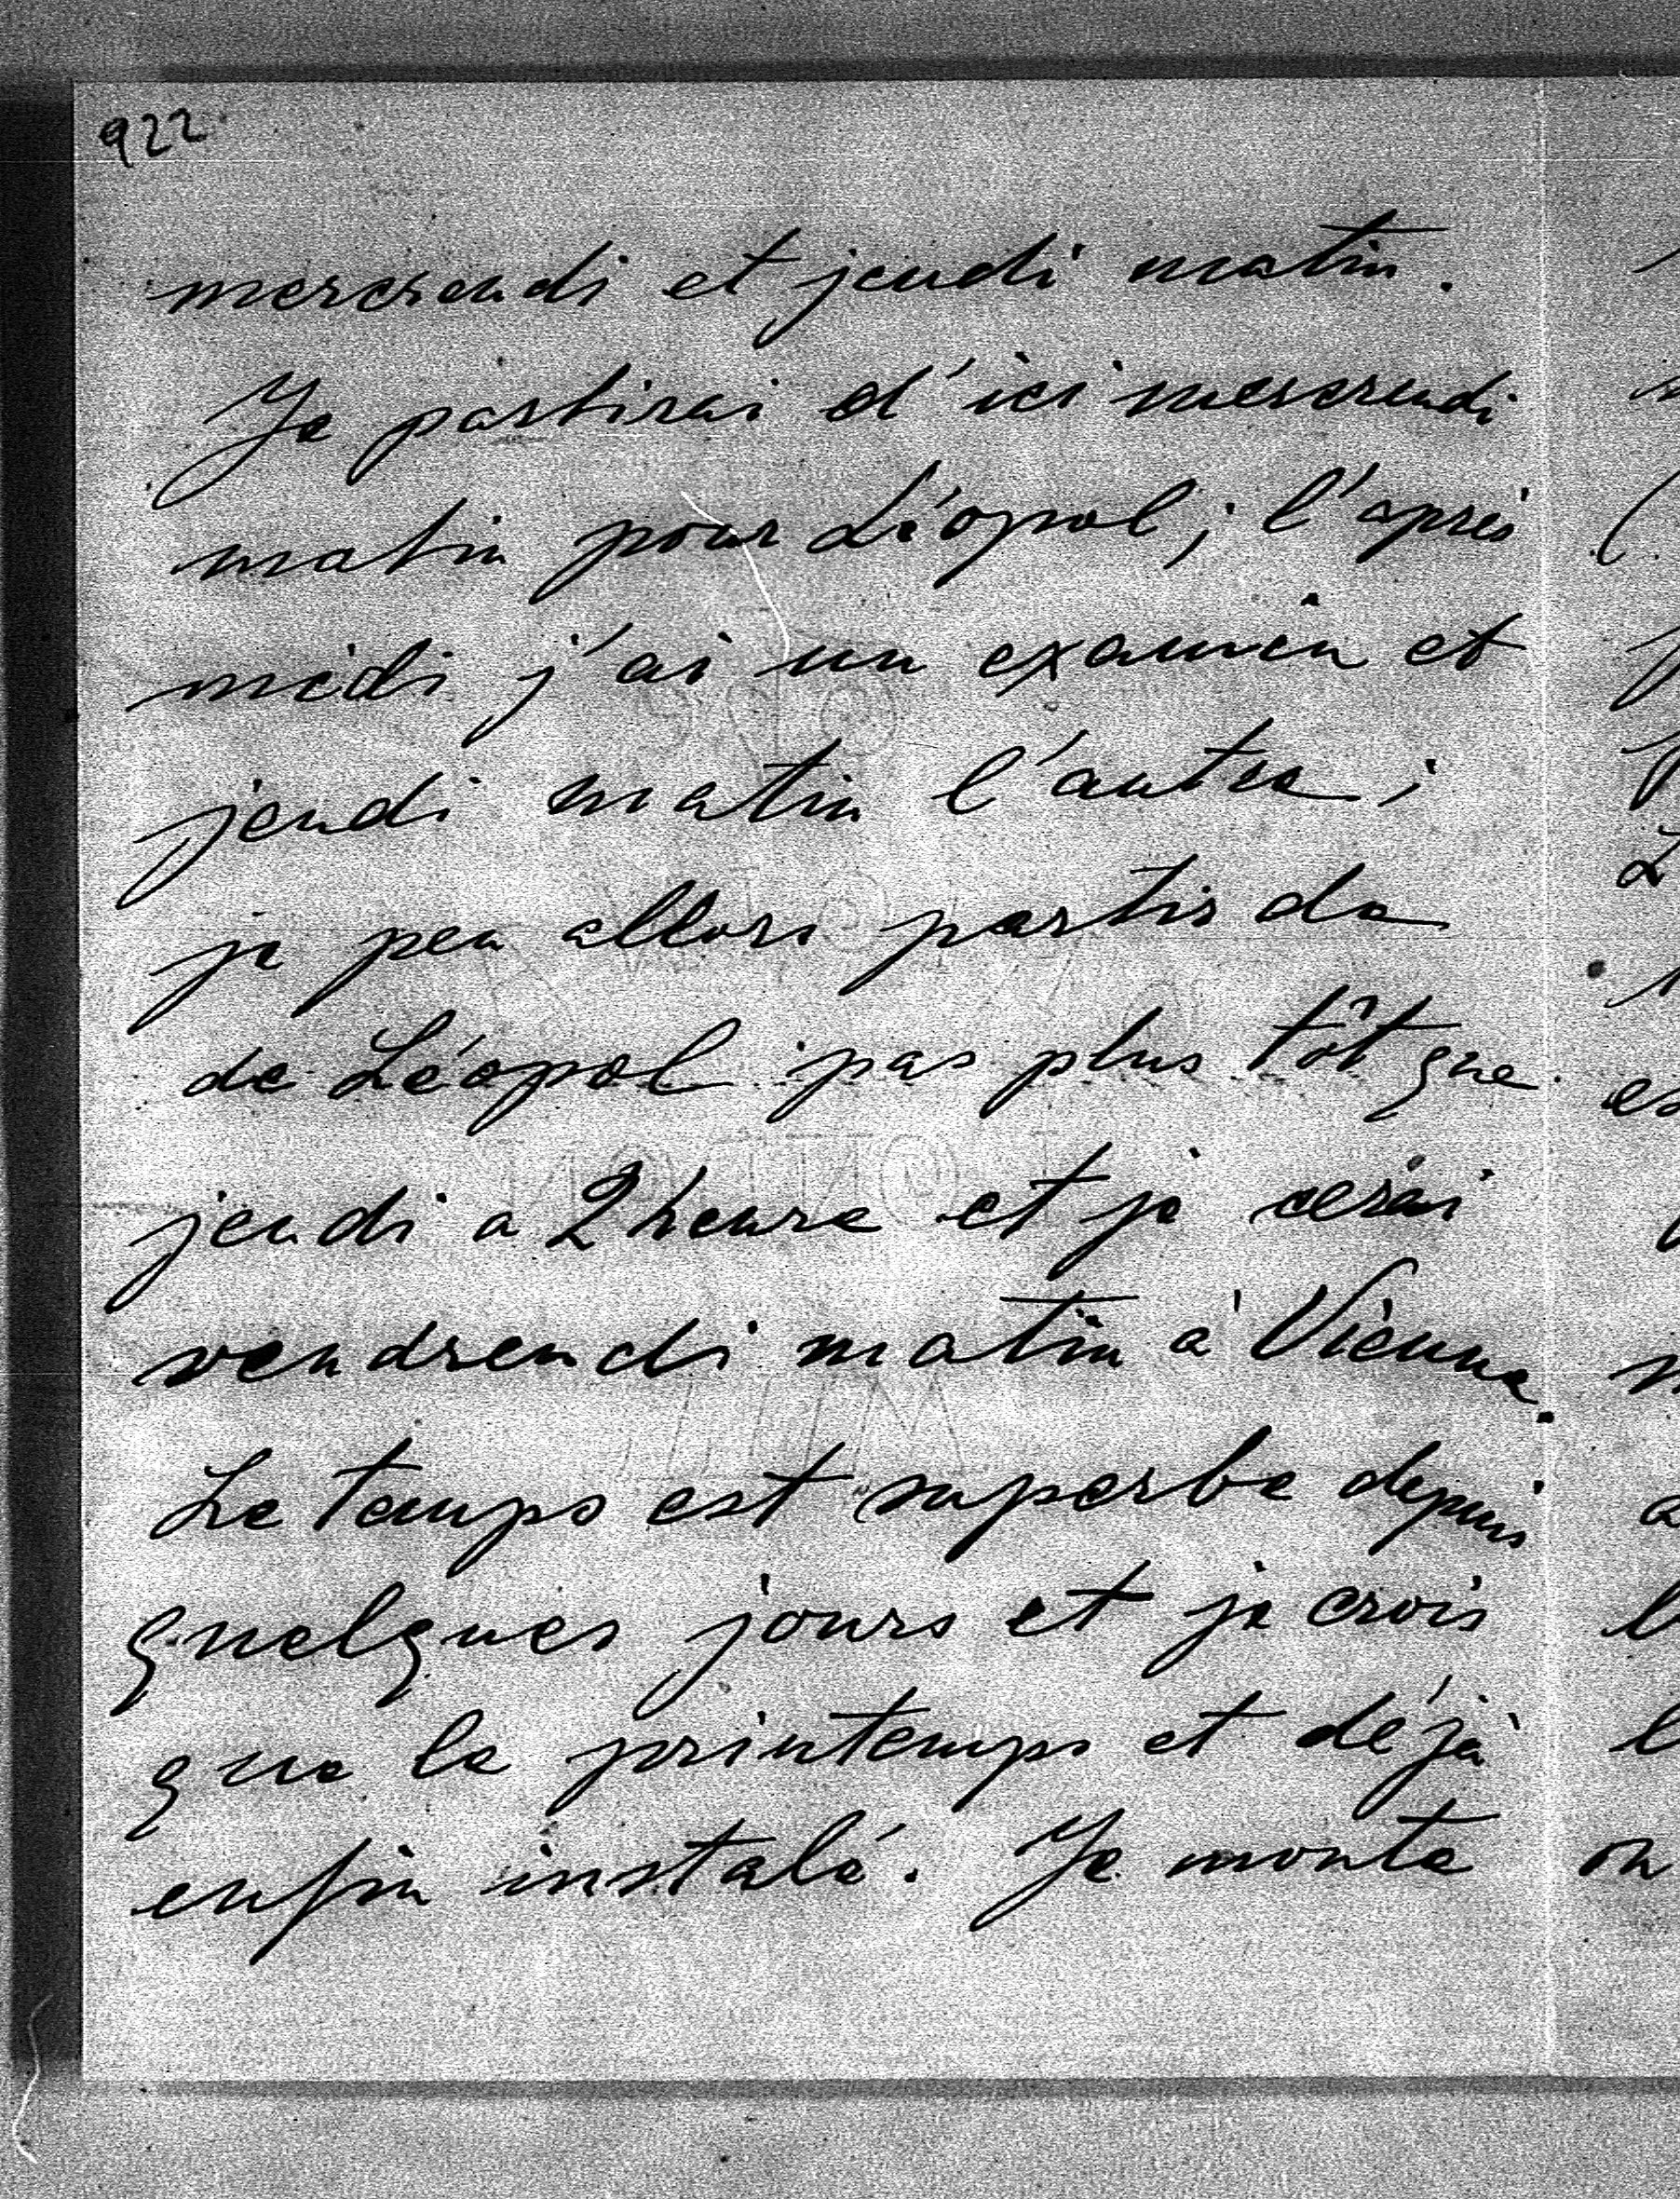 922
mercrendi et jeudi matin.
Je partirai d'ici mercrendi
matin pour Léopol; l'après
midi j'ai un examin et
jeudi matin l'autre;
je peu allors partir de
de Léopol pas plus tôt que
jeudi a 2 heure et je serai
vendrendi matin à Vienne.
Le temps est superbe depuis
quelques jours et je crois
que le printemps et déjà
enfin instalé. Je monte